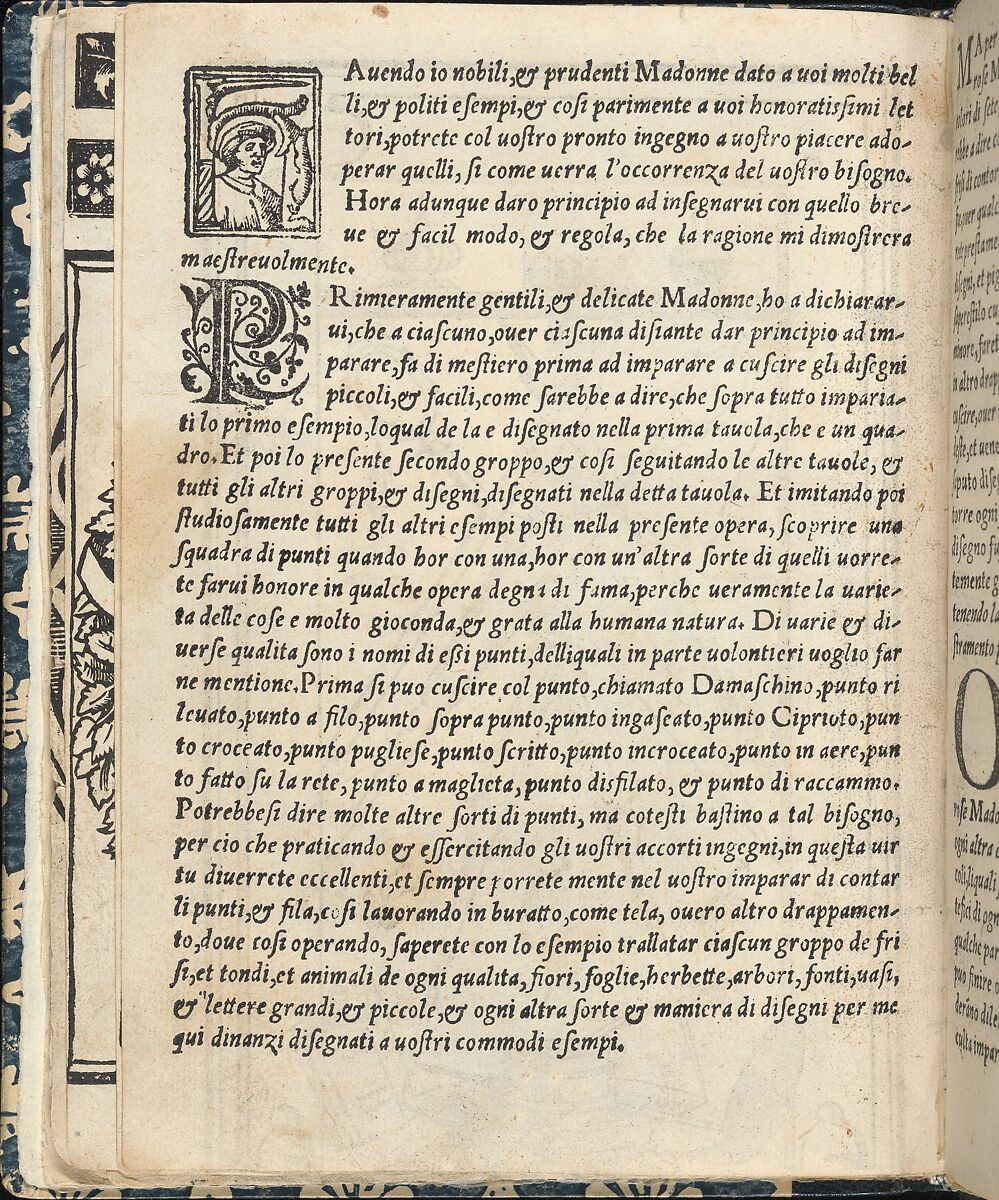 HAuendo io nobili,& prudenti Madonne dato a uoi molti bel
li,& politi esempi,& cosi parimente a uoi honoratissimi let
tori,potrete col uostro pronto ingegno a uostro piacere ado-
perar quelli, si come uerra l'occorrenza del uostro bisogno.
Hora adunque daro principio ad insegnarui con quello bre-
ue & facil modo, & regola, che la ragione mi dimostrera
maestreuolmente.
PRimieramente gentili,& delicate Madonne,ho a dichiarar-
ui,che a ciascuno,ouer ciascuna distante dar principio ad im-
parare,fa di mestiero prima ad imparare a cuscire gli disegni
piccoli,& facili,come sarebbe a dire,che sopra tutto imparia-
ti lo primo esempio,loqual de la e disegnato nella prima tauola,che e un qua-
dro.Et poi lo presente secondo groppo,& cosi seguitando le altre tauole, &
tutti gli altri groppi,& disegni,disegnati nella detta tauola. Et imitando poi
studiosamente tutti gli altri esempi posti nella presente opera, scoprire una
squadra di punti quando hor con una,hor con un'altra sorte di quelli uorre-
te farui honore in qualche opera degna di fama,perche ueramente la uarie-
ta delle cose e molto gioconda,& grata alla humana natura. Di uarie & di-
uerse qualita sono i nomi di essi punti,delliquali in parte uolontieri uoglio far
ne mentione.Prima si puo cuscire col punto,chiamato Damaschino,punto ri
leuato,punto a filo,punto sopra punto,punto ingaseato,punto Ciprioto,pun
to croceato,punto pugliese,punto scritto,punto incroceato,punto in aere,pun
to fatto su la rete, punto a maglieta, punto disfilato, & punto di raccammo.
Potrebbesi dire molte altre sorti di punti, ma cotesti bastino a tal bisogno,
per cio che praticando & essercitando gli uostri accorti ingegni,in questa uir
tu diuerrete eccellenti,et sempre porrete mente nel uostro imparar di contar
li punti,& fila,cosi lauorando in buratto,come tela, ouero altro drappamen-
to,doue cosi operando, saperete con lo esempio trallatar ciascun groppo de fri
si,et tondi,et animali de ogni qualita,fiori,foglie,herbette,arbori,fonti,uasi,
& lettere grandi,& piccole,& ogni altra sorte & maniera di disegni per me
qui dinanzi disegnati a uostri commodi esempi.